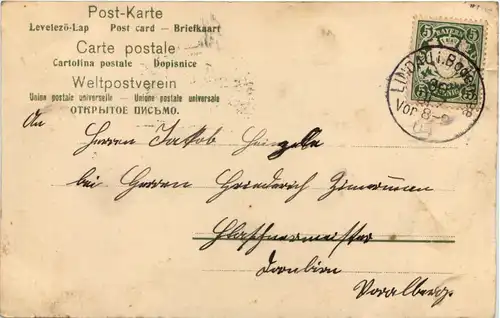 Post-Karte
Levelező-Lap Post card — Briefkaart
Carte postale
Cartolina postale Dopisnice
Weltpostverein
Union postale universelle — Unione postale universale
ОТКРЫТОЕ ПИСЬМО.
BAYERN
5 5
LINDAU i.B
Vor 8-9
An
Herrn Jakob
bei Herrn Friederich Zimermann
Flaschnermeister
Dornbirn
Voralberg.